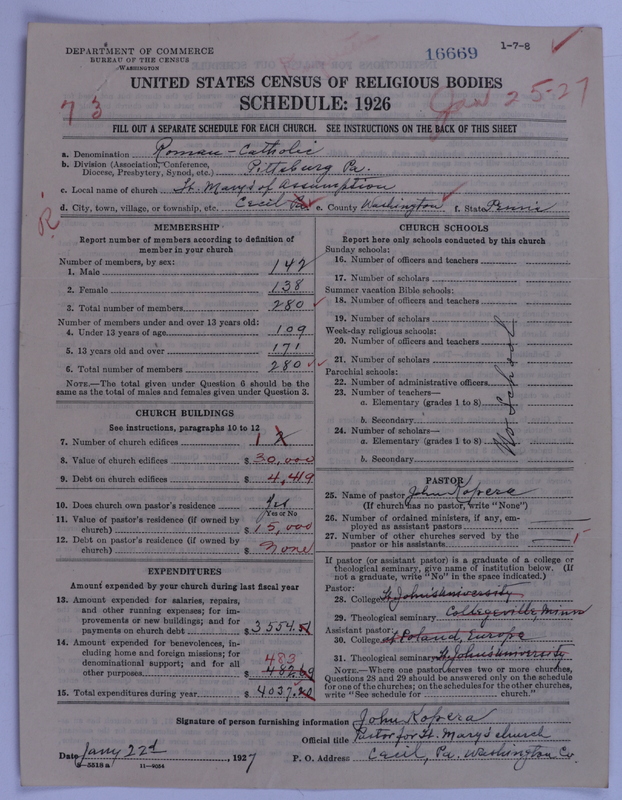 DEPARTMENT OF COMMERCE
BUREAU OF THE CENSUS
WASHINGTON
16669
1-7-8
UNITED STATES CENSUS OF RELIGIOUS BODIES
SCHEDULE: 1926
73
Jan 25-27
FILL OUT A SEPARATE SCHEDULE FOR EACH CHURCH. SEE INSTRUCTIONS ON THE BACK OF THIS SHEET
a. Denomination Roman-Catholic
b. Division (Association, Conference, Diocese, Presbytery, Synod, etc.) Pittsburg Pa.
c. Local name of church St. Mary's of Assumption
d. City, town, village, or township, etc. Cecil Pa. e. County Washington f. State Penna
R
MEMBERSHIP
Report number of members according to definition of
member in your church
Number of members, by sex:
1. Male 142
2. Female 138
3. Total number of members 280
Number of members under and over 13 years old:
4. Under 13 years of age 109
5. 13 years old and over 171
6. Total number of members 280
NOTE.—The total given under Question 6 should be the
same as the total of males and females given under Question 3.
CHURCH BUILDINGS
See instructions, paragraphs 10 to 12
7. Number of church edifices 1
8. Value of church edifices $ 30,000
9. Debt on church edifices $ 4,419
10. Does church own pastor's residence Yes
Yes or No
11. Value of pastor's residence (if owned by
church) $ 15,000
12. Debt on pastor's residence (if owned by
church) $ None
EXPENDITURES
Amount expended by your church during last fiscal year
13. Amount expended for salaries, repairs,
and other running expenses; for im-
provements or new buildings; and for
payments on church debt $ 3554.51
14. Amount expended for benevolences, in-
cluding home and foreign missions; for
denominational support; and for all
483
other purposes $ 482.69
15. Total expenditures during year $ 4037.20
CHURCH SCHOOLS
Report here only schools conducted by this church
Sunday schools:
16. Number of officers and teachers
17. Number of scholars
Summer vacation Bible schools:
18. Number of officers and teachers
19. Number of scholars
Week-day religious schools:
20. Number of officers and teachers
21. Number of scholars
Parochial schools:
22. Number of administrative officers
23. Number of teachers—
a. Elementary (grades 1 to 8)
b. Secondary
24. Number of scholars—
a. Elementary (grades 1 to 8)
b. Secondary
No School
PASTOR
25. Name of pastor John Kopera
(If church has no pastor, write "None")
26. Number of ordained ministers, if any, em-
ployed as assistant pastors
27. Number of other churches served by the
pastor or his assistants
If pastor (or assistant pastor) is a graduate of a college or
theological seminary, give name of institution below. (If
not a graduate, write "No" in the space indicated.)
Pastor:
28. College St. John's University
29. Theological seminary Collegeville, Minn
Assistant pastor:
30. College of Poland, Europe
31. Theological seminary St. John's University
NOTE.—Where one pastor serves two or more churches,
Questions 28 and 29 should be answered only on the schedule
for one of the churches; on the schedules for the other churches,
write "See schedule for church."
Signature of person furnishing information John Kopera
Official title Pastor for St. Mary's church
Date Jany 22d, 1927 P. O. Address Cecil, Pa. Washington Co.
8-5518 a 11-9034